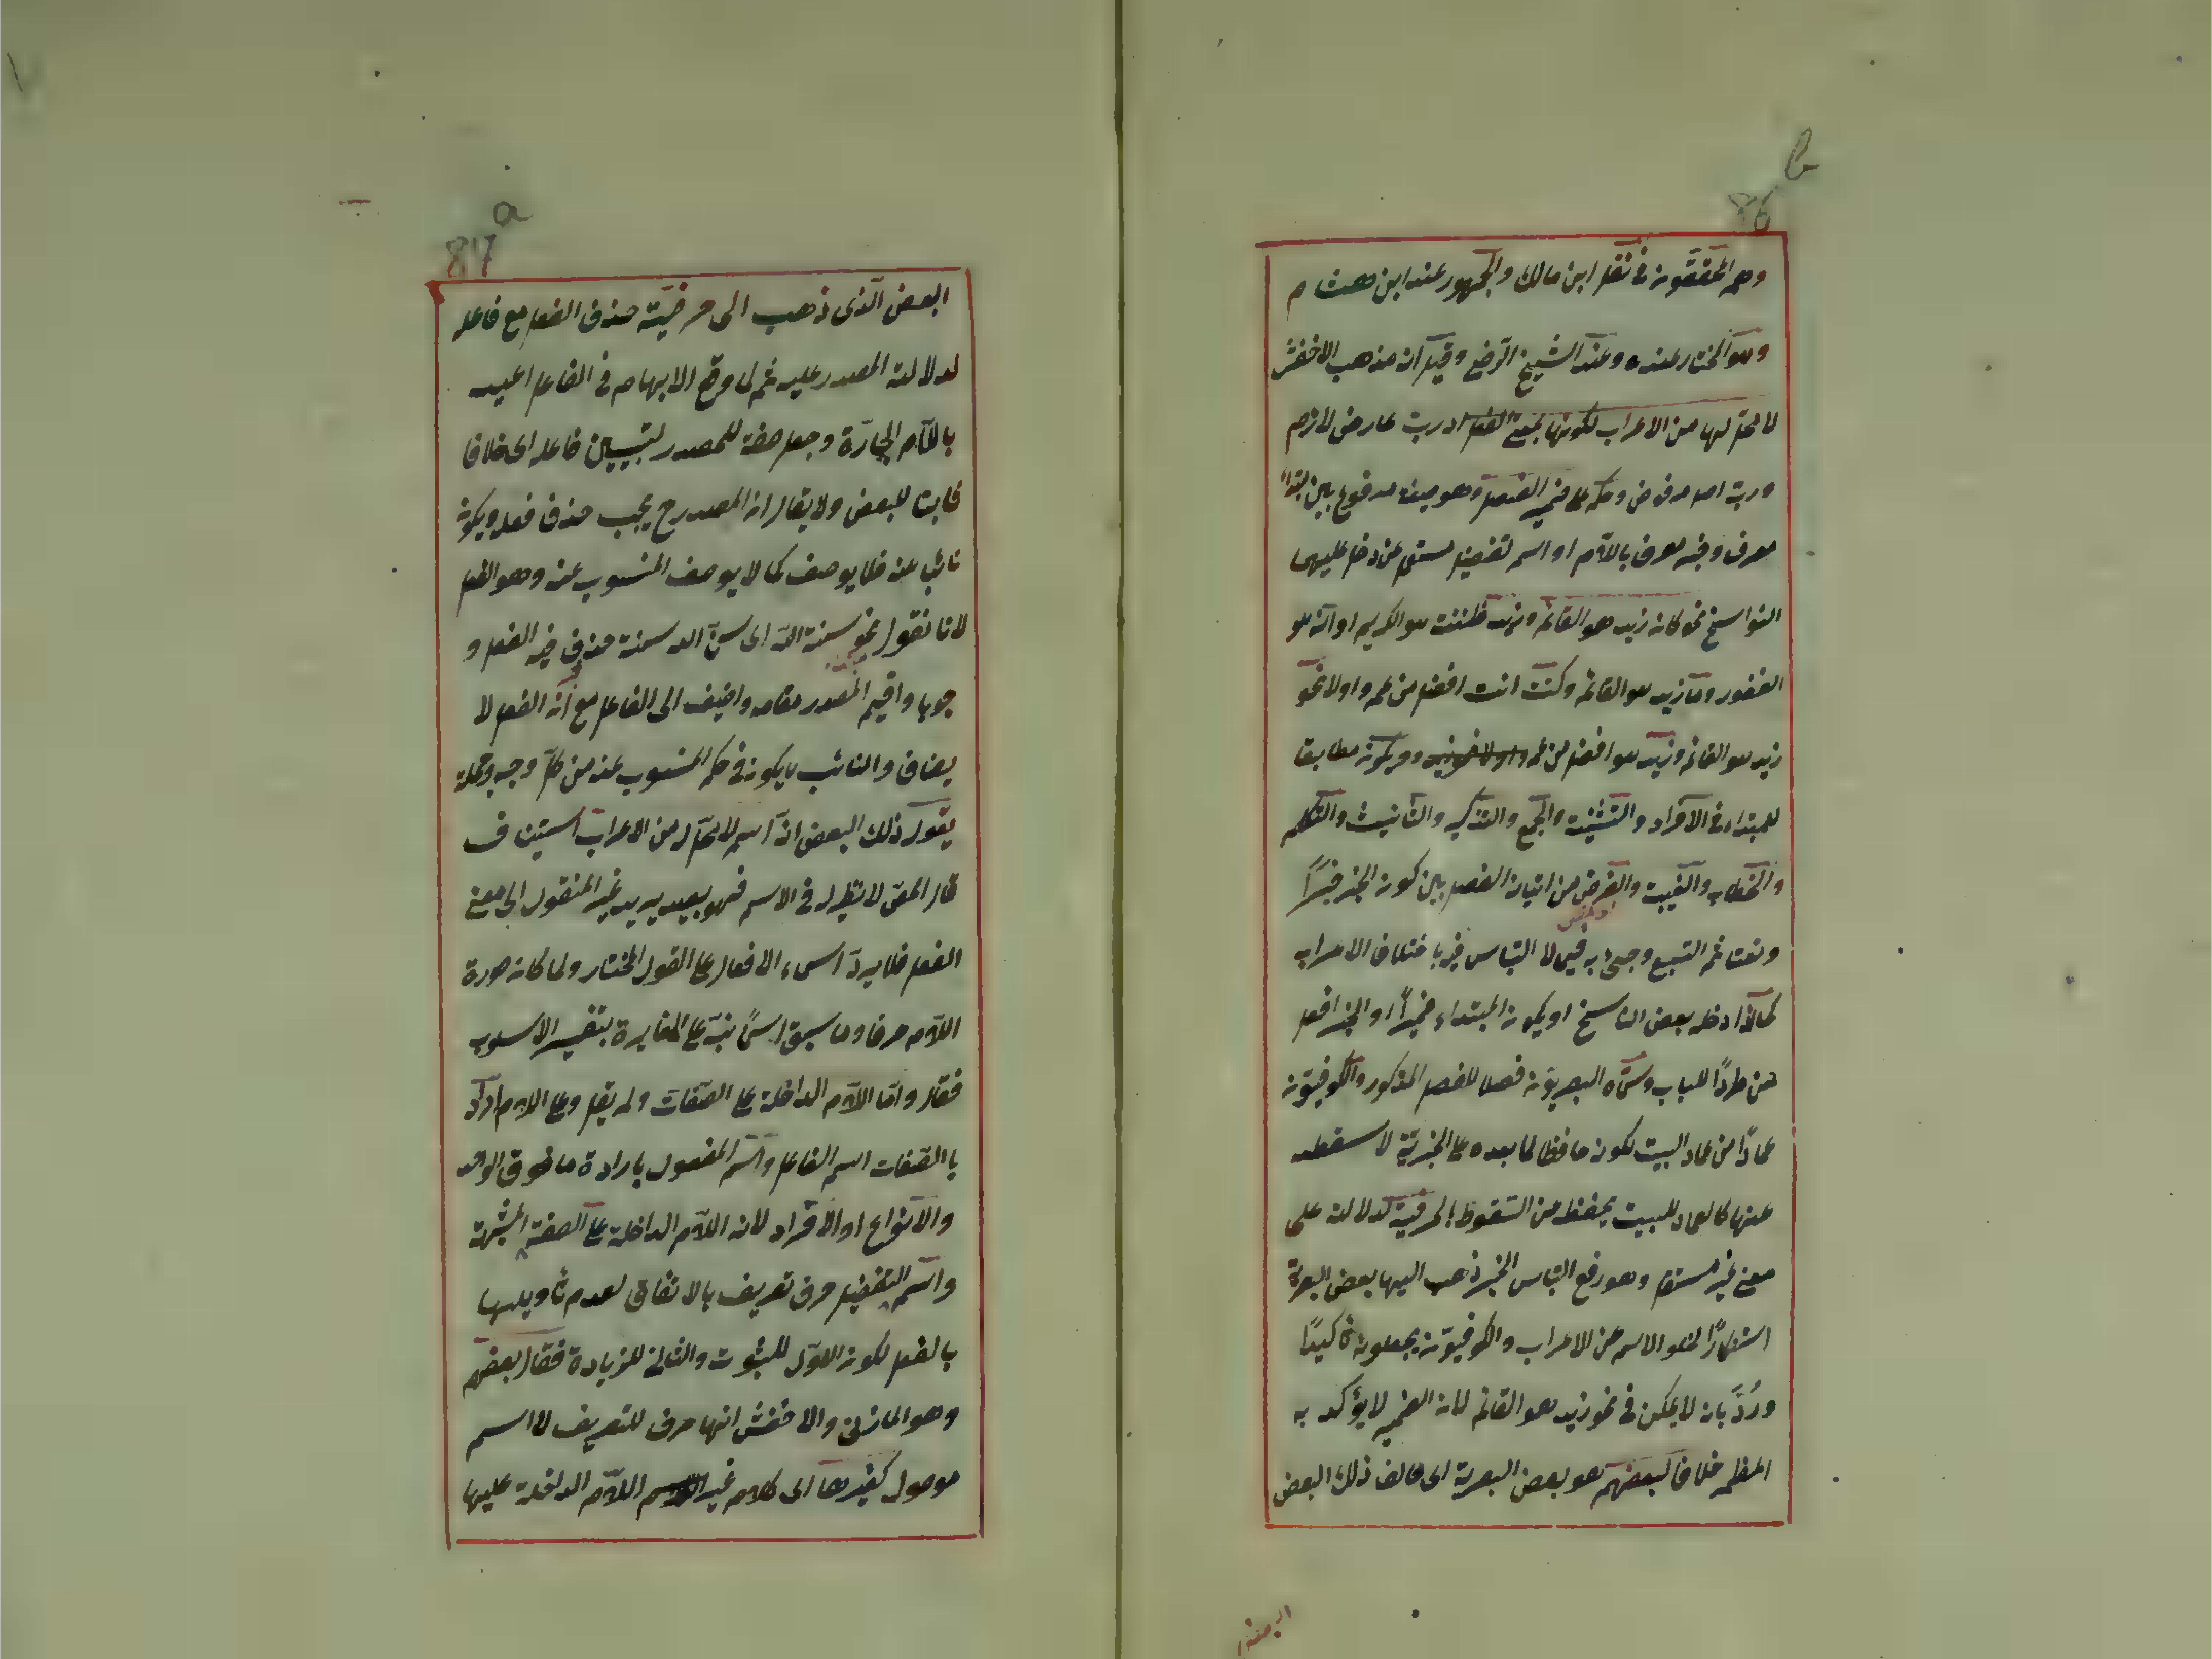 b
86
وهم المحققون في نقل ابن مالك والجمهور عند ابن هشام
وهو المختار عنده وعند الشيخ الرضي وقيل انه مذهب الاخفش
لا محل لها من الاعراب لكونها بمعنى الفعل اذ ربت عارض لازم
وربة اما حرف ضمير الفصل وهو صيغة مرفوع بين مبتدا
معرف وخبر معرف باللام او اسم تفضيل مستعمل عن دخل عليهما
النواسخ نحو كان زيد هو القائم وزيد ظننت هو الكريم او انه هو
الغفور وما زيد هو القائم وكنت انت افضل من عمرو اولا نحو
زيد هو القائم وزيد هو افضل من عمرو ويكون مطابقا
للمبتداء في الافراد والتثنية والجمع والتذكير والتأنيث والتكلم
والخطاب والغيبة والغرض من اتيان الفصل بين كون الخبر خبرًا
ونعتا ثم اتسع وجيئ به فيما لا التباس فيه باختلاف الاعراب
كما اذا دخله بعض الناسخ او يكون المبتداء ضميرًا او الخبر افعل
من طردًا للباب وسمّاه البصريون فصلا للفصل المذكور والكوفيون
عمادًا من عماد البيت لكونه حافظا لما بعده على الخبرية لا سقطه
عنها كالعماد للبيت يحفظه من السقوط بالحرفية كدلالته على
معنى غير مستقل وهو رفع التباس الخبر ذهب اليها بعض البصرية
استنكارًا لخلو الاسم عن الاعراب والكوفيون يجعلونه تأكيدًا
ورُدَّ بانه لا يمكن في نحو زيد هو القائم لان الضمير لا يؤكد به
المظهر خلافا لبعضهم هو بعض البصرية اى خالف ذلك البعض
a
87
البعض الّذى ذهب الى حرفيّته حذف الفعل مع فاعله
لدلالة المصدر عليه ثم لما وقع الابهام في الفاعل اعيد
باللام الجارّة وجعل صفة للمصدر لتبيين فاعله اى خلافا
ثابتا للبعض ولا يقال ان المصدر ح يجب حذف فعله ويكون
نائبا عنه فلا يوصف كما لا يوصف المنسوب عنه وهو الفعل
لانا نقول نحو سنة الله اى سنّ الله سنة حذف فيه الفعل و
جوبا واقيم المصدر مقامه واضيف الى الفاعل مع انّ الفعل لا
يضاف والنائب لا يكون في حكم المنسوب عنه من كل وجه وجملة
يقول ذلك البعض انه اسم لا محل له من الاعراب استيناف
قال المصّ لا نظير له في الاسم فهو بعيد يريد غير المنقول الى معنى
الفعل فلا يردّ اسماء الافعال على القول المختار ولما كان صورة
اللام حرفا وما سبق اسمًا نبّه على المغايرة بتغيير الاسلوب
فقال وامّا اللام الداخلة على الصفات ولم يقل وعلى اللام اراد
بالصفات اسم الفاعل واسم المفعول بارادة ما فوق الواحد
والانواع او الافراد لان اللام الداخلة على الصفة المشبهة
واسم التفضيل حرف تعريف بالاتفاق لعدم تأويلها
بالفعل لكون الاول للثبوت والثانى للزيادة فقال بعضهم
وهو المازنى والاخفش انها حرف للتعريف لا اسم
موصول كغيرها اى كلام غير اللام الداخلة عليها